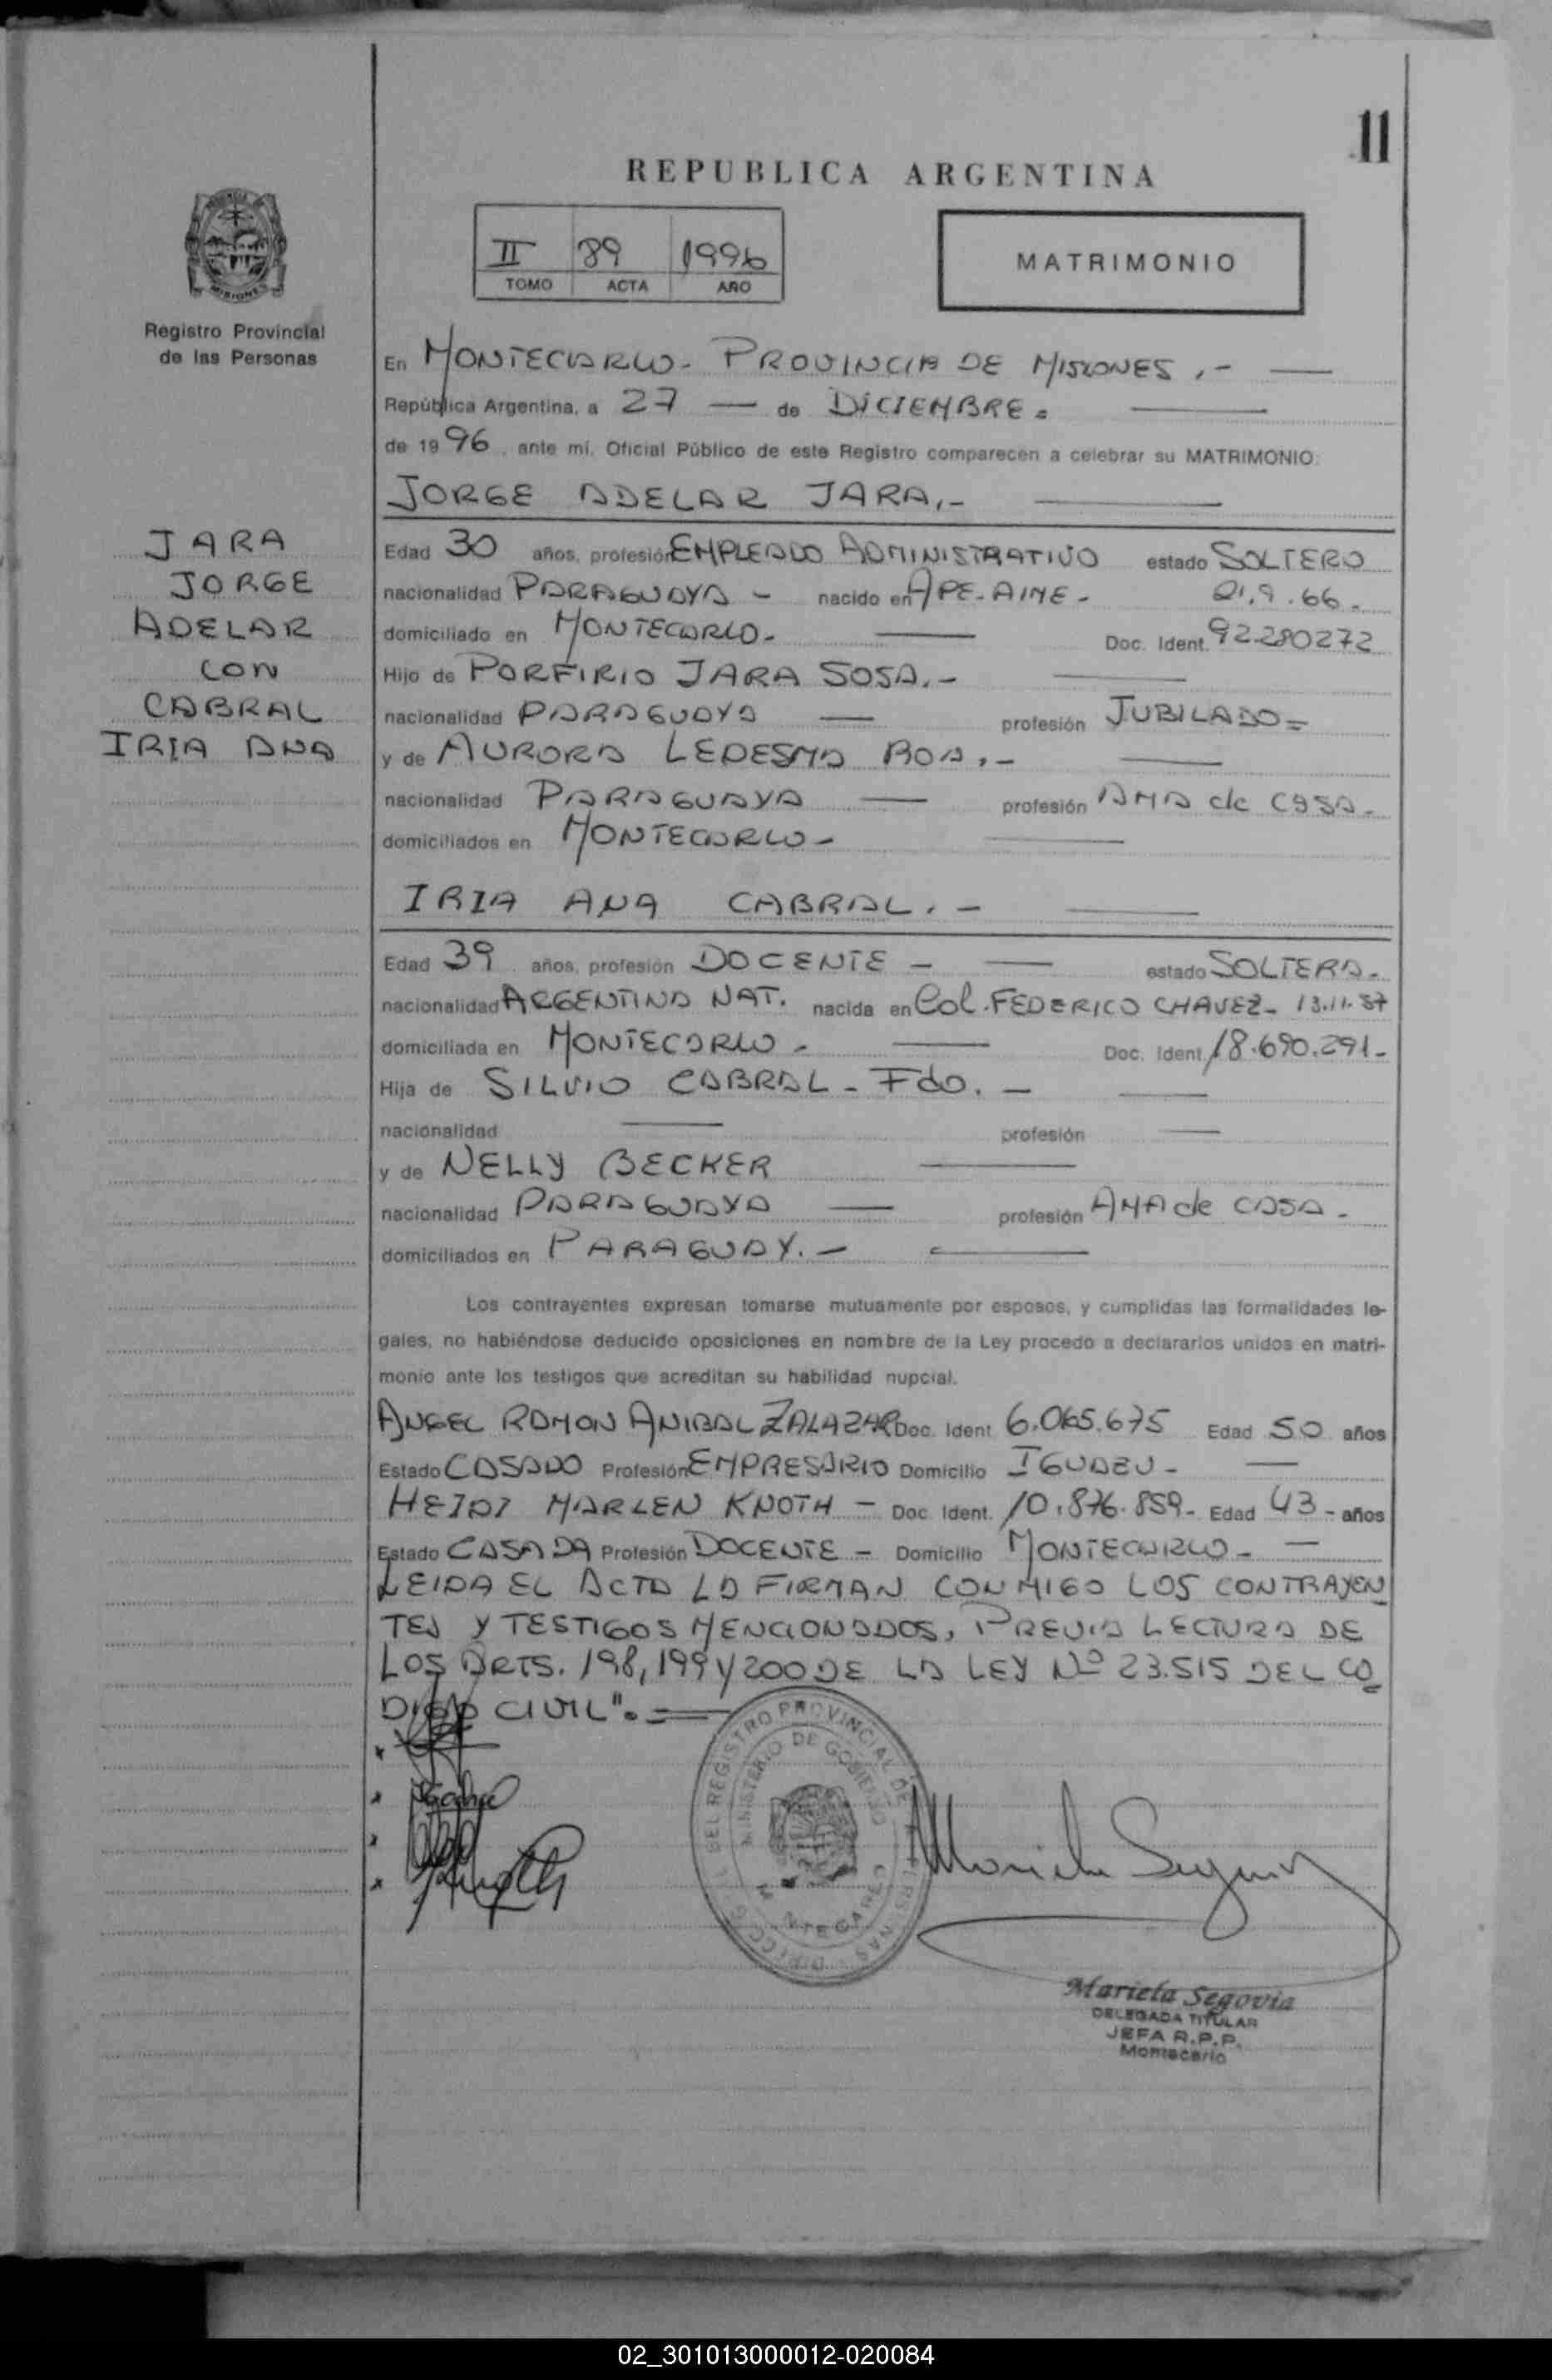 11
REPUBLICA ARGENTINA
II 89 1996
TOMO ACTA AÑO
MATRIMONIO
Registro Provincial
de las Personas
En MONTECARLO - PROVINCIA DE MISIONES .-
República Argentina, a 27 — de DICIEMBRE =
de 1996, ante mí, Oficial Público de este Registro comparecen a celebrar su MATRIMONIO:
JORGE ADELAR JARA.-
JARA
JORGE
ADELAR
CON
CABRAL
IRIA ANA
Edad 30 años, profesión EMPLEADO ADMINISTRATIVO estado SOLTERO
nacionalidad PARAGUAYA - nacido en APE-AIME - 21.9.66.
domiciliado en MONTECARLO - Doc. Ident. 92.280272
Hijo de PORFIRIO JARA SOSA.-
nacionalidad PARAGUAYA — profesión JUBILADO =
y de AURORA LEDESMA BOA .-
nacionalidad PARAGUAYA — profesión AMA de CASA -
domiciliados en MONTECARLO -
IRIA ANA CABRAL . -
Edad 39 años, profesión DOCENTE - — estado SOLTERA -
nacionalidad ARGENTINA NAT. nacida en Col. FEDERICO CHAVEZ - 13.11.57
domiciliada en MONTECARLO - Doc. Ident. 18.690.291-
Hija de SILVIO CABRAL - Fdo. -
nacionalidad — profesión —
y de NELLY BECKER
nacionalidad PARAGUAYA — profesión AMA de CASA -
domiciliados en PARAGUAY. -
Los contrayentes expresan tomarse mutuamente por esposos, y cumplidas las formalidades le-
gales, no habiéndose deducido oposiciones en nombre de la Ley procedo a declararlos unidos en matri-
monio ante los testigos que acreditan su habilidad nupcial.
ANGEL RAMON ANIBAL ZALAZAR Doc. Ident 6.065.675 Edad 50 años
Estado CASADO Profesión EMPRESARIO Domicilio IGUAZU -
HEIDI MARLEN KNOTH - Doc. Ident. 10.876.859- Edad 43 - años
Estado CASADA Profesión DOCENTE - Domicilio MONTECARLO - —
LEIDA EL ACTA LA FIRMAN CONMIGO LOS CONTRAYEN
TES Y TESTIGOS MENCIONADOS, PREVIA LECTURA DE
LOS ARTS. 198, 199 Y 200 DE LA LEY Nº 23.515 DEL CO
DIGO CIVIL". =
DEL REGISTRO PROVINCIAL DE
MINISTERIO DE GOBIERNO
Mariela Segovia
Mariela Segovia
DELEGADA TITULAR
JEFA R.P.P.
Montecarlo
02_301013000012-020084